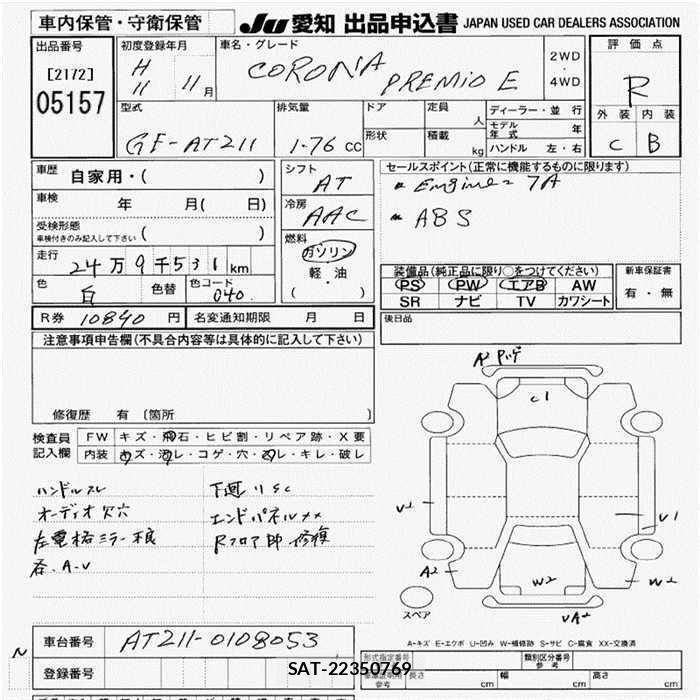 車内保管・守衛保管
JU 愛知 出品申込書 JAPAN USED CAR DEALERS ASSOCIATION
出品番号
[2172]
05157
初度登録年月
H 11 11月
車名・グレード
CORONA PREMIO E
2WD
・
4WD
評価点
R
外装 内装
C B
型式
GF-AT211
排気量
1.76 CC
ドア
形状
定員 人
積載 kg
ディーラー・並行
モデル年式 年
ハンドル 左・右
車歴 自家用・( )
車検 年 月( 日)
受検形態
車検付きのみ記入して下さい ( )
走行
24万9千531km
色 白 色替 色コード 040.
シフト
AT
冷房
AAC
燃料
ガソリン
軽・油
( ・ )
セールスポイント(正常に機能するものに限ります)
Engine= 7A
ABS
装備品(純正品に限り○をつけてください)
PS PW エアB AW
SR ナビ TV カワシート
新車保証書
有・無
後日品
R券 10840 円 名変通知期限 月 日
注意事項申告欄(不具合内容等は具体的に記入して下さい)
修復歴 有 〔箇所
検査員
記入欄
FW キズ・飛石・ヒビ割・リペア跡・X要
内装 キズ・汚レ・コゲ・穴・スレ・キレ・破レ
ハンドルスレ
オーディオ欠穴
下廻りSC
エンドパネルXX
Rフロア 修復
A2
C1
V2
V1
A2
W2
W2
VA2
スペア
A-キズ E-エクボ U-凹み W-補修跡 S-サビ C-腐食 XX-交換済
車台番号 AT211-0108053
登録番号
形式指定番号
類別区分番号
参考
長さ cm 幅 cm 高さ cm
参考
SAT-22350769